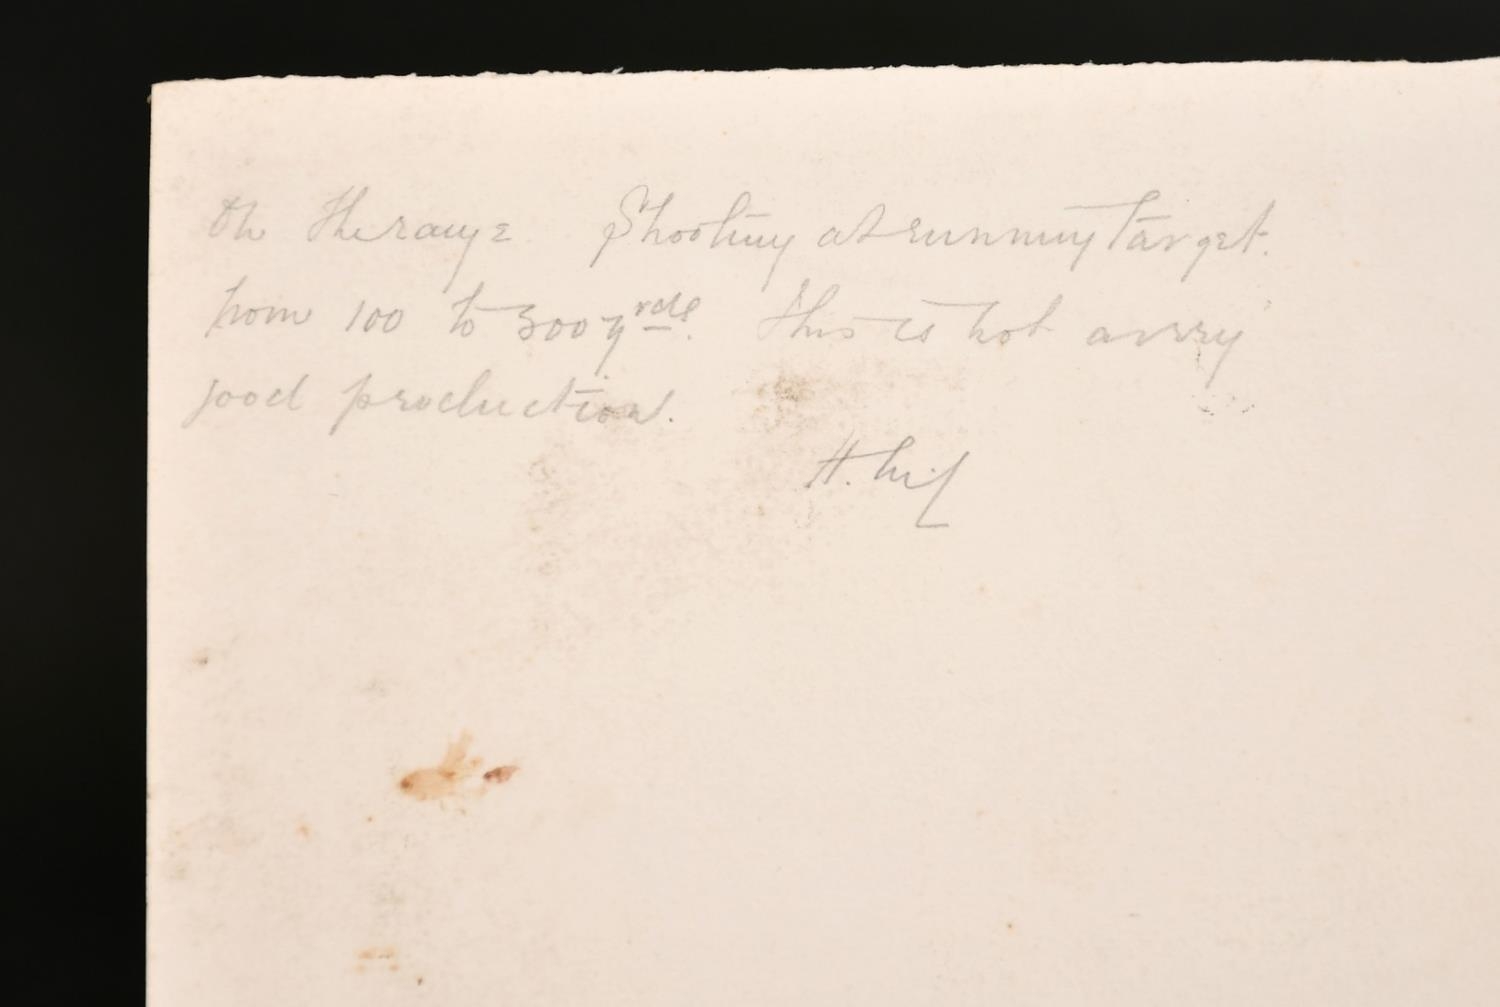 On the range Shooting at running target.
from 100 to 300 yrds. This is not a very
good production.
H.